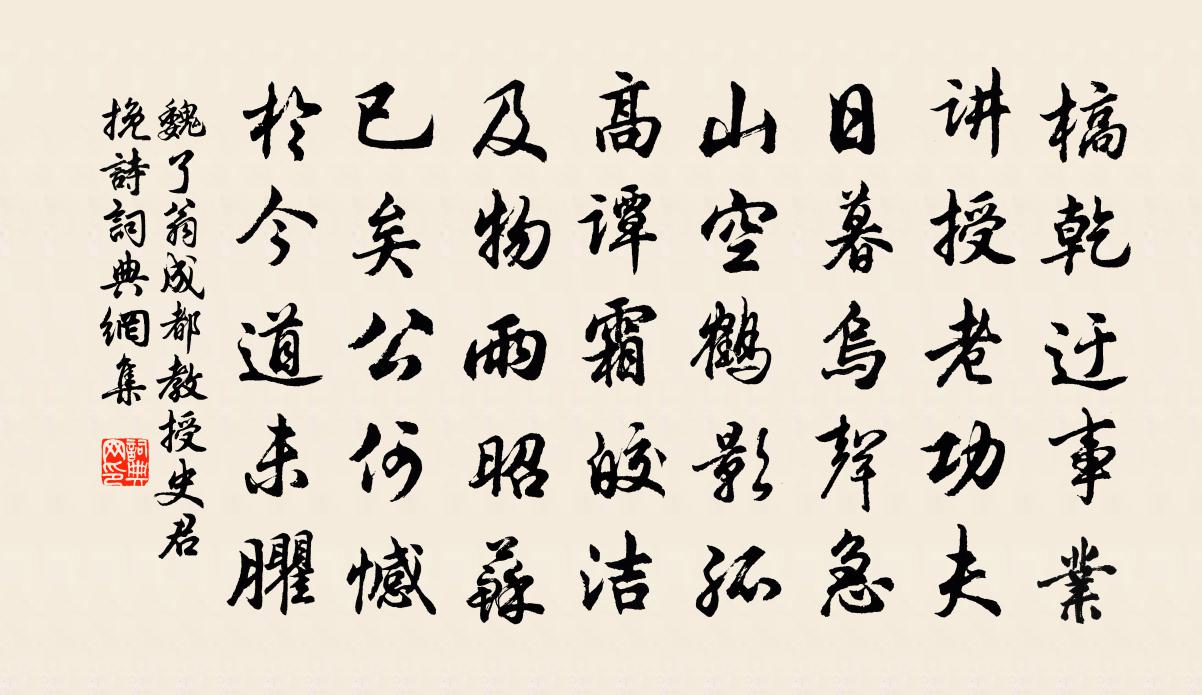 槁乾迂事業
讲授老功夫
日暮烏聲急
山空鶴影孤
高谭霜皎洁
及物雨昭蘇
已矣公何憾
於今道未臞
魏了翁成都教授史君
挽詩詞典網集
詞典网印